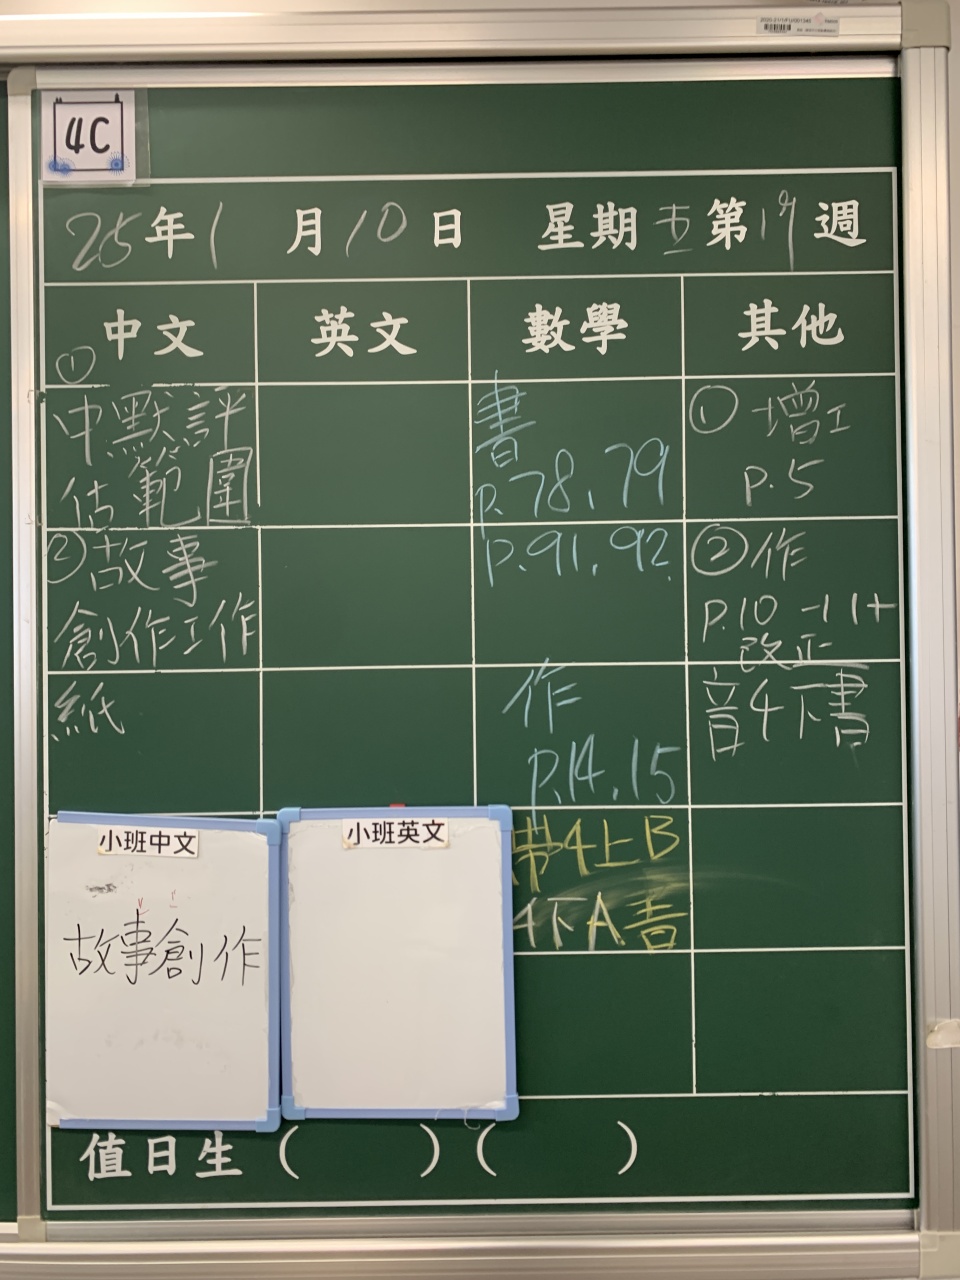 4C
25年1月10日 星期五第17週
中文 英文 數學 其他
①
中默評
估範圍
②故事
創作工作
紙
書
p.78,79
p.91,92
作
p.14,15
帶4上B
4下A書
① 增工
p.5
②作
p.10-11+
改正
音4下書
小班中文
故事創作
小班英文
值日生( )( )